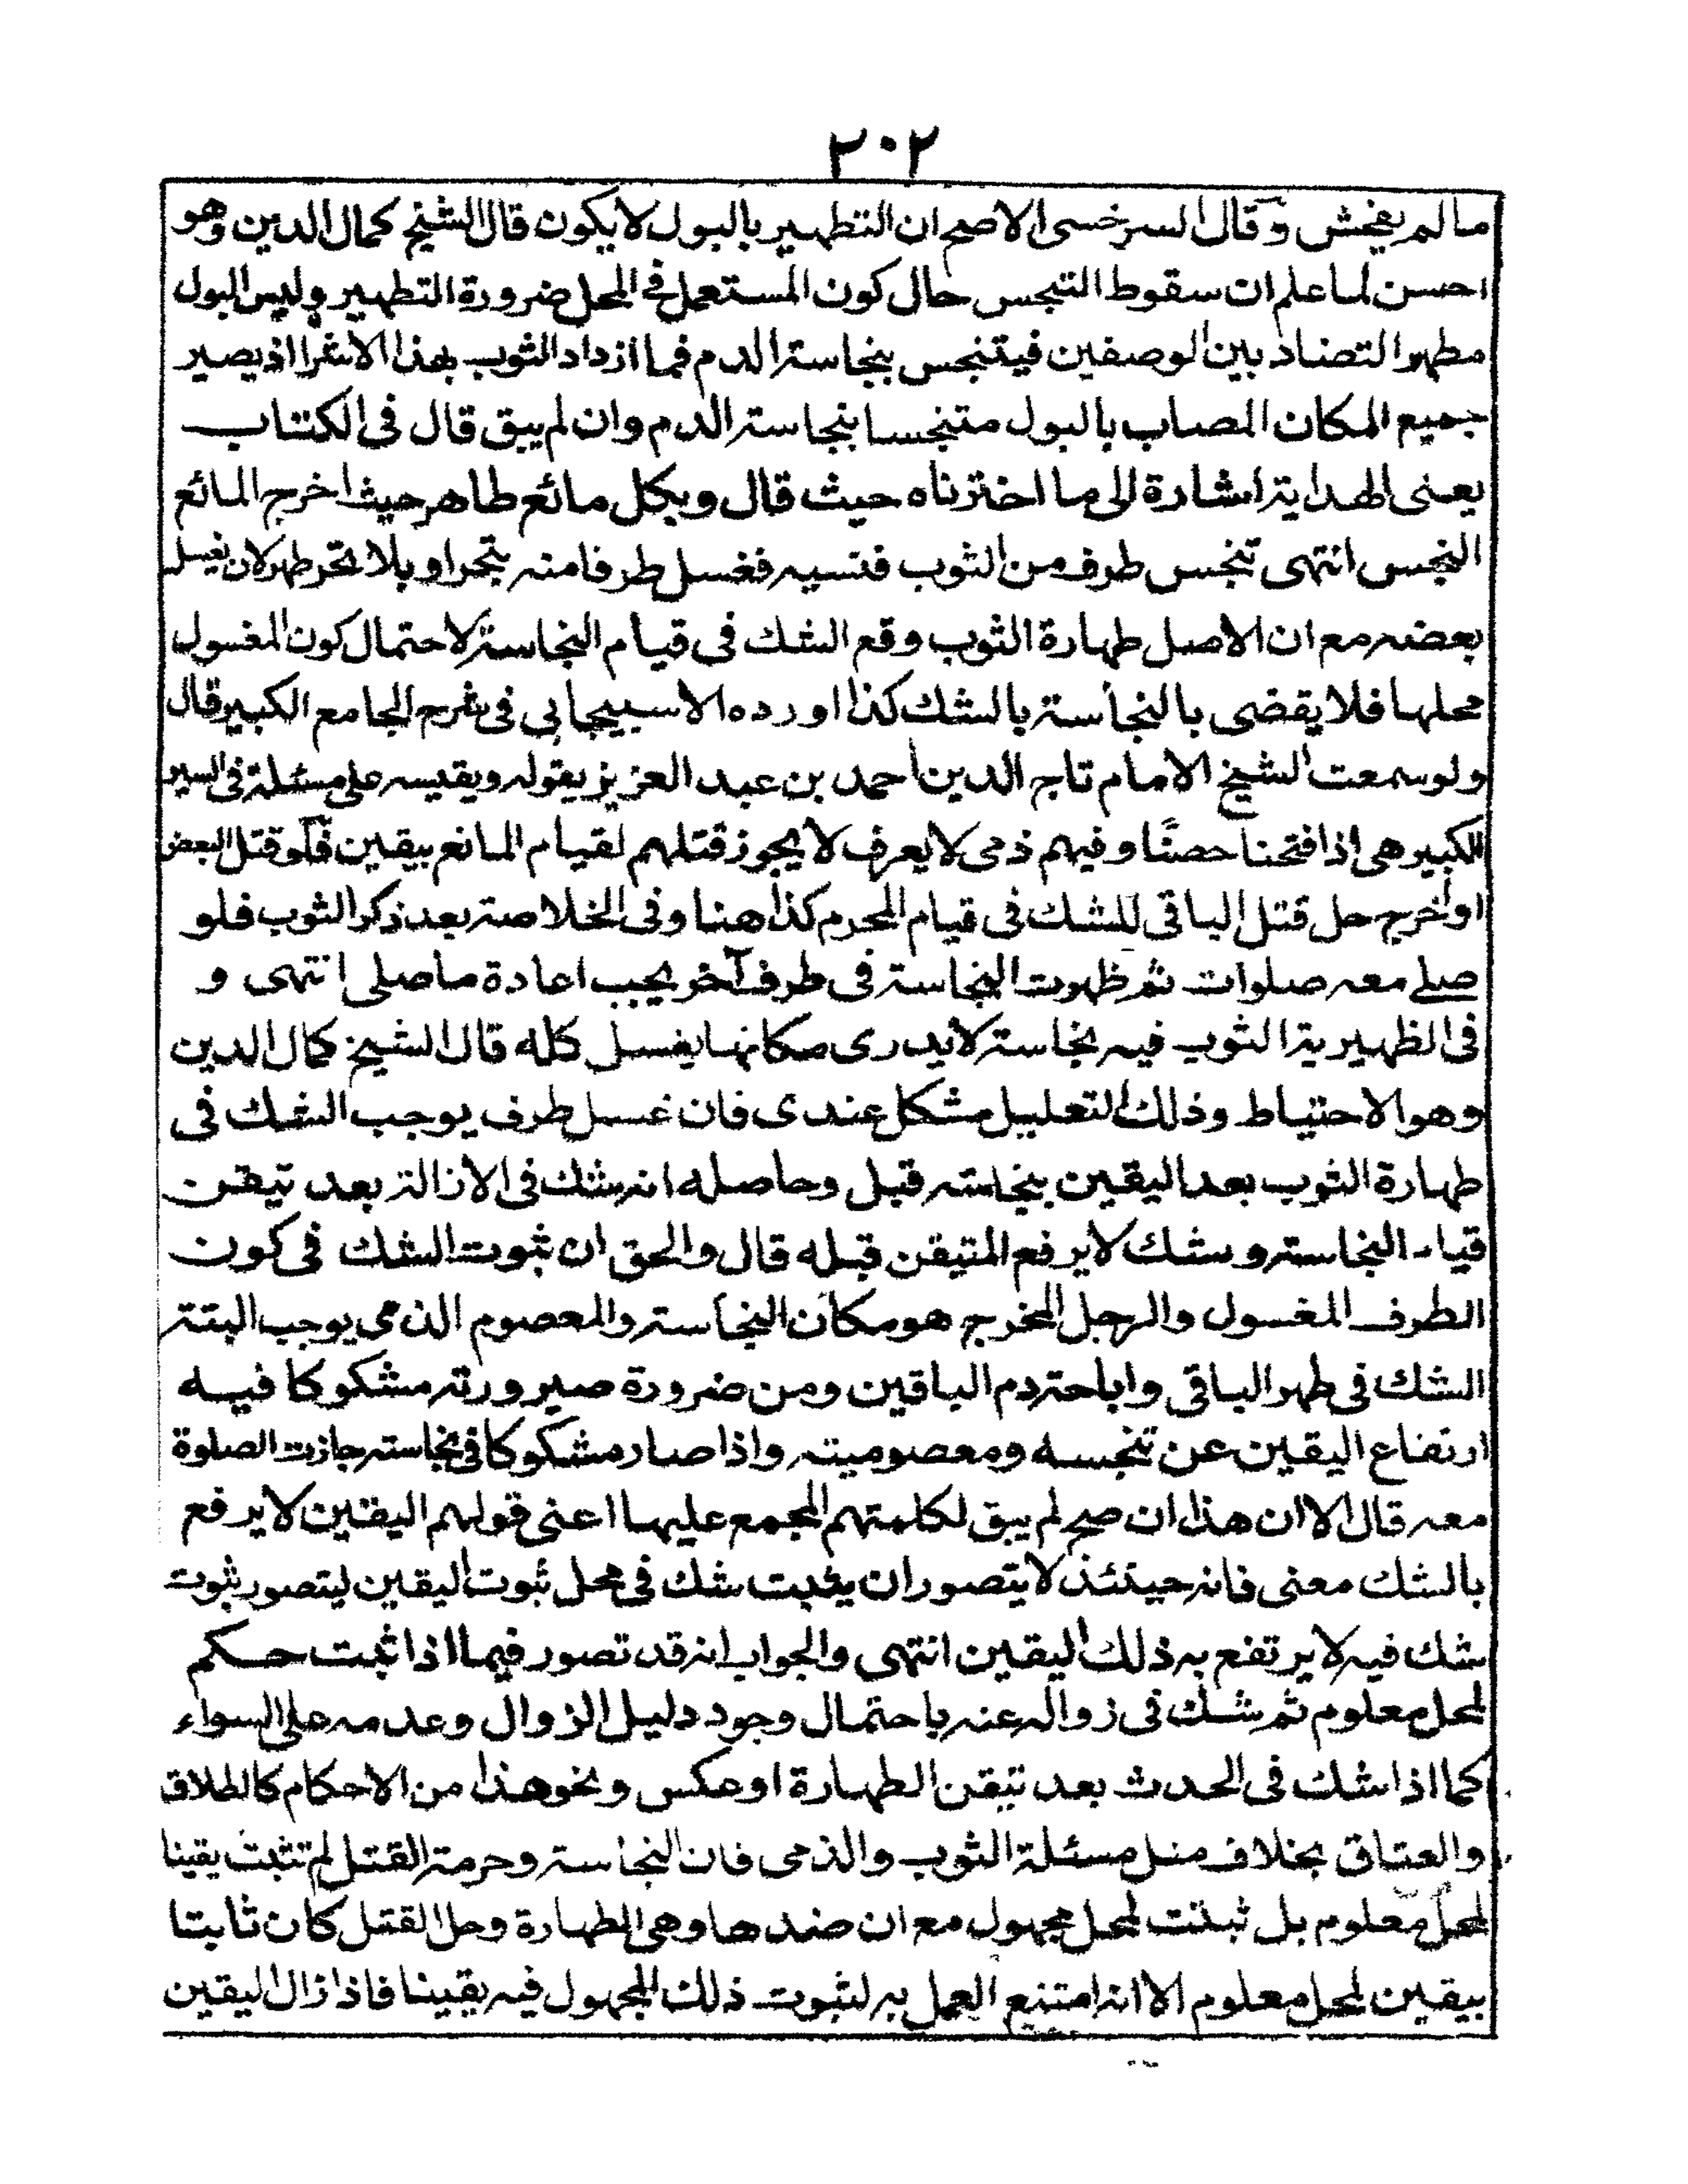 ٢٠٢
مالم يفحش وقال السرخسى الاصح ان التطهير بالبول لا يكون قال الشيخ كمال الدين وهو
احسن لما علم ان سقوط التنجس حال كون المستعمل فى المحل ضرورة التطهير وليس البول
مطهرا لتضاد بين الوصفين فيتنجس بنجاسة الدم فما ازداد الثوب بهذا الا شرا اذ يصير
جميع المكان المصاب بالبول متنجسا بنجاسة الدم وان لم يبق قال فى الكتاب
يعنى الهداية اشارة الى ما اخترناه حيث قال وبكل مائع طاهر حيث اخرج المائع
النجس انتهى تنجس طرف من الثوب فنسيه فغسل طرفا منه بتحر او بلا تحر طهر لان بغسل
بعضه مع ان الاصل طهارة الثوب وقع الشك فى قيام النجاسة لاحتمال كون المغسول
محلها فلا يقضى بالنجاسة بالشك كذا اورده الاسبيجابى فى شرح الجامع الكبير قال
ولو سمعت الشيخ الامام تاج الدين احمد بن عبد العزيز يقوله ويقيسه على مسئلة فى السير
الكبير هى اذا فتحنا حصنًا وفيهم ذمى لا يعرف لا يجوز قتلهم لقيام المانع بيقين فلو قتل البعض
او اخرج حل قتل الباقى للشك فى قيام المحرم كذا هنا وفى الخلاصة بعد ذكر الثوب فلو
صلے معه صلوات ثم ظهرت النجاسة فى طرف آخر يجب اعادة ما صلى انتهى و
فى الظهيرية الثوب فيه نجاسة لا يدرى مكانها يغسل كله قال الشيخ كمال الدين
وهو الاحتياط وذلك التعليل مشكل عندى فان غسل طرف يوجب الشك فى
طهارة الثوب بعد اليقين بنجاسته قبل وحاصله انه شك فى الازالة بعد تيقن
قيام النجاسة وشك لا يرفع المتيقن قبله قال والحق ان ثبوت الشك فى كون
الطرف المغسول والرجل المخرج هو مكان النجاسة والمعصوم الذمى يوجب البتة
الشك فى طهر الباقى واباحة دم الباقين ومن ضرورة صيرورته مشكوكا فيه
ارتفاع اليقين عن تنجسه ومعصوميته واذا صار مشكوكا فى نجاسته جازت الصلوة
معه قال الا ان هذا ان صح لم يبق لكلمتهم المجمع عليها اعنى قولهم اليقين لا يرفع
بالشك معنى فانه حينئذ لا يتصور ان يثبت شك فى محل ثبوت اليقين ليتصور ثبوت
شك فيه لا يرتفع به ذلك اليقين انتهى والجواب انه قد تصور فيما اذا ثبت حكم
لمحل معلوم ثم شك فى زواله عنه باحتمال وجود دليل الزوال وعدمه على السواء
كما اذا شك فى الحدث بعد تيقن الطهارة او عكس ونحو هذا من الاحكام كالطلاق
والعتاق بخلاف مثل مسئلة الثوب والذمى فان النجاسة وحرمة القتل لم تثبت يقينا
لمحل معلوم بل ثبتت لمحل مجهول مع ان ضدها وهى الطهارة وحل القتل كان ثابتا
بيقين لمحل معلوم الا انه امتنع العمل به لثبوت ذلك المجهول فيه يقينا فاذا زال اليقين